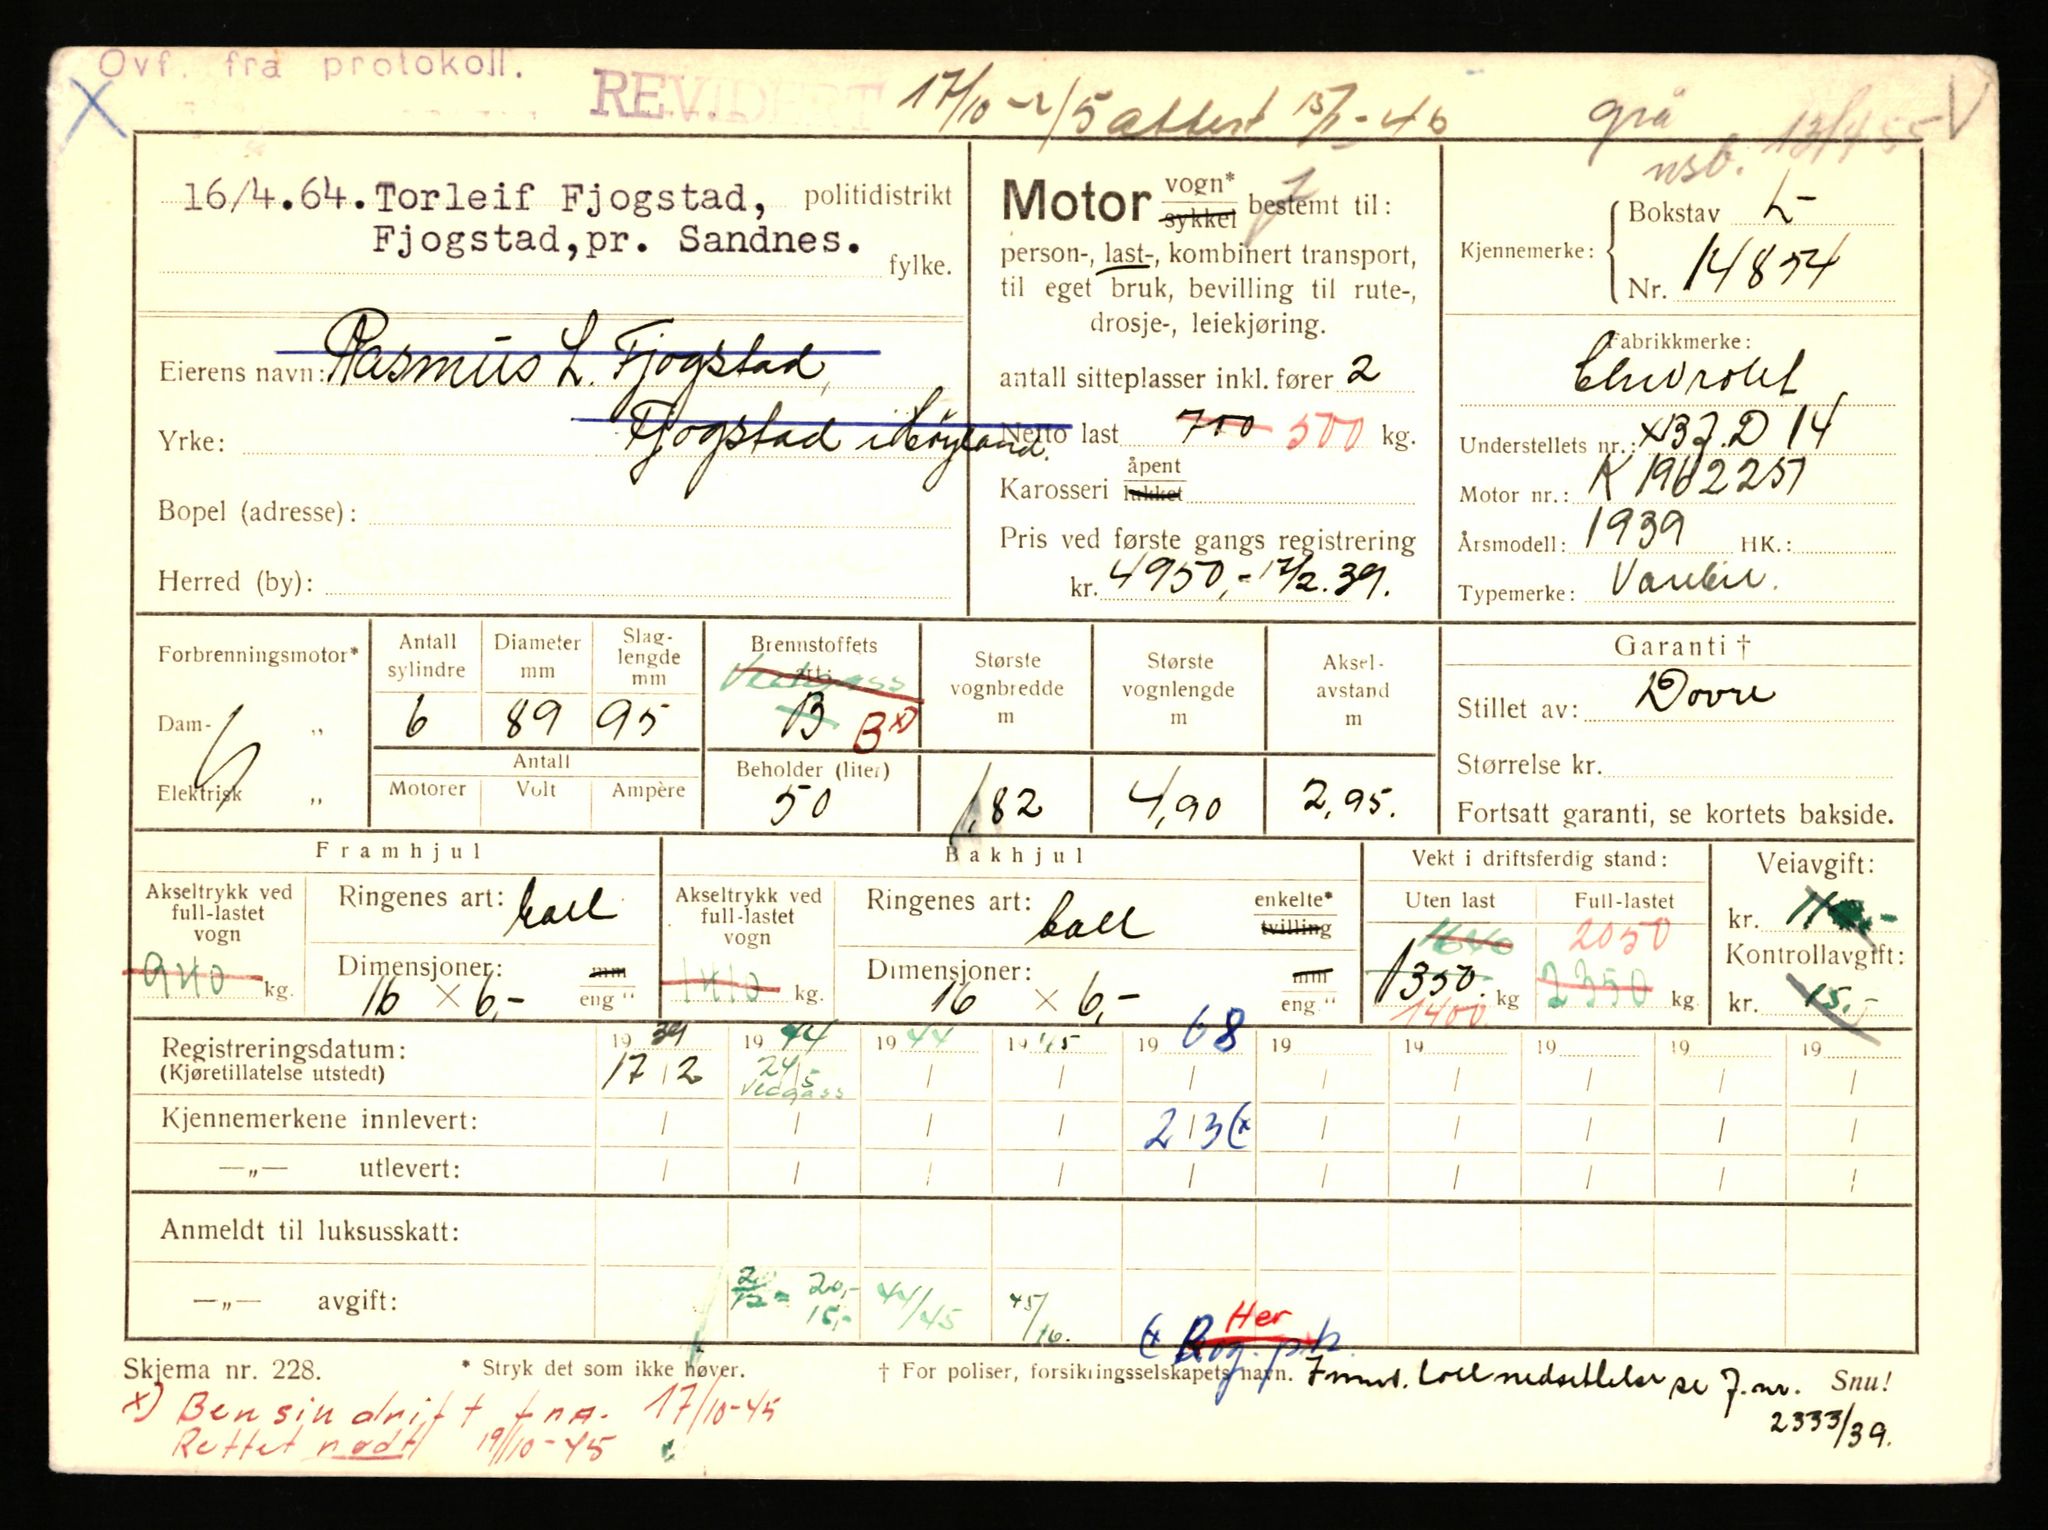 Ovf. fra protokoll.
REVIDERT 17/10 - 2/5 attest 15/1-46
grå
nsb. 13/4 55
16/4.64. Torleif Fjogstad, politidistrikt
Fjogstad, pr. Sandnes.
fylke.
Eierens navn: Rasmus L. Fjogstad,
Yrke: Fjogstad i Høyland.
Bopel (adresse):
Herred (by):
Motor vogn* sykkel bestemt til:
person-, last-, kombinert transport,
til eget bruk, bevilling til rute-,
drosje-, leiekjøring.
antall sitteplasser inkl. fører 2
Netto last 700 500 kg.
Karosseri åpent lukket
Pris ved første gangs registrering
kr. 4950,- 17/2.39.
Kjennemerke: Bokstav L-
Nr. 14854
Fabrikkmerke:
Chevrolet
Understellets nr.: 137.D 14
Motor nr.: K 1962251
Årsmodell: 1939 HK.:
Typemerke: Varebil.
Forbrenningsmotor*
Dam- „
Elektrisk „
Antall sylindre 6
Diameter mm 89
Slag-lengde mm 95
Antall
Motorer Volt Ampère
Brennstoffets
Vedgass
B Bx)
Beholder (liter)
50
Største vognbredde m 1,82
Største vognlengde m 4,90
Aksel-avstand m 2,95.
Garanti †
Stillet av: Dovre
Størrelse kr.
Fortsatt garanti, se kortets bakside.
Framhjul
Akseltrykk ved full-lastet vogn
940 kg.
Ringenes art: ball
Dimensjoner: mm
16 × 6,- eng "
Bakhjul
Akseltrykk ved full-lastet vogn
1410 kg.
Ringenes art: ball enkelte* tvilling
Dimensjoner: mm
16 × 6,- eng "
Vekt i driftsferdig stand:
Uten last Full-lastet
1640 2050
1350 kg 2350 kg.
1400
Veiavgift:
kr.
Kontrollavgift:
kr. 15,-
Registreringsdatum: 1939 1944 1944 1945 1968 19 19 19 19 19
(Kjøretillatelse utstedt) 17/2 24/5 / / / / / / / /
Vedgass
Kjennemerkene innlevert: / / / / 2/3 (x / / / / /
—„— utlevert: / / / / / / / / / /
Anmeldt til luksusskatt:
—„— avgift: 20/12 = 20,- 15,- 44/45 45/46.
(x Rog. p.k. Her
Skjema nr. 228. * Stryk det som ikke høver. † For poliser, forsikringsselskapets navn. Snu!
nedsettelse se J.nr.
2333/39.
x) Bensindrift fra. 17/10-45
Rettet nødt 19/10-45